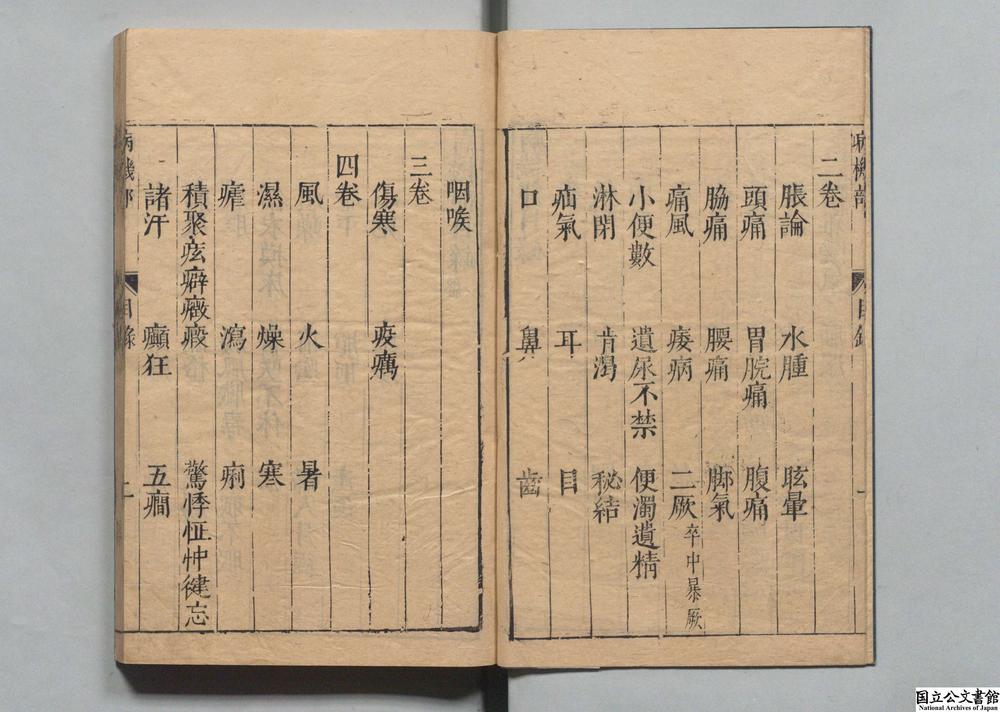 病機部 目錄 一
二卷
脹論 水腫 眩暈
頭痛 胃脘痛 腹痛
脇痛 腰痛 脚氣
痛風 痿病 二厥 卒中暴厥
小便數 遺尿不禁 便濁遺精
淋閉 肯渴 秘結
疝氣 耳 目
口 鼻 齒
咽喉
三卷
傷寒 疫癘
四卷
風 火 暑
濕 燥 寒
瘧 瀉 痢
積聚痃癖癥瘕 驚悸怔忡健忘
諸汗 癲狂 五癇
病機部 目錄 二
国立公文書館
National Archives of Japan